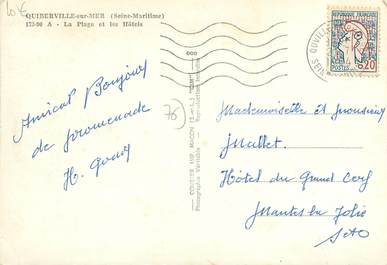 10 €
QUIBERVILLE-sur-MER (Seine-Maritime)
172-90 A - La Plage et les Hôtels
Amical Bonjour
de promenade
H.
76
COMBIER IMP. MACON (S.-&-L.)
Photographie Véritable - Reproduction Interdite
REPUBLIQUE FRANÇAISE
0,20
POSTES
Mademoiselle et Monsieur
Mallet
Hôtel du Grand Cerf
Mantes la Jolie
S&O